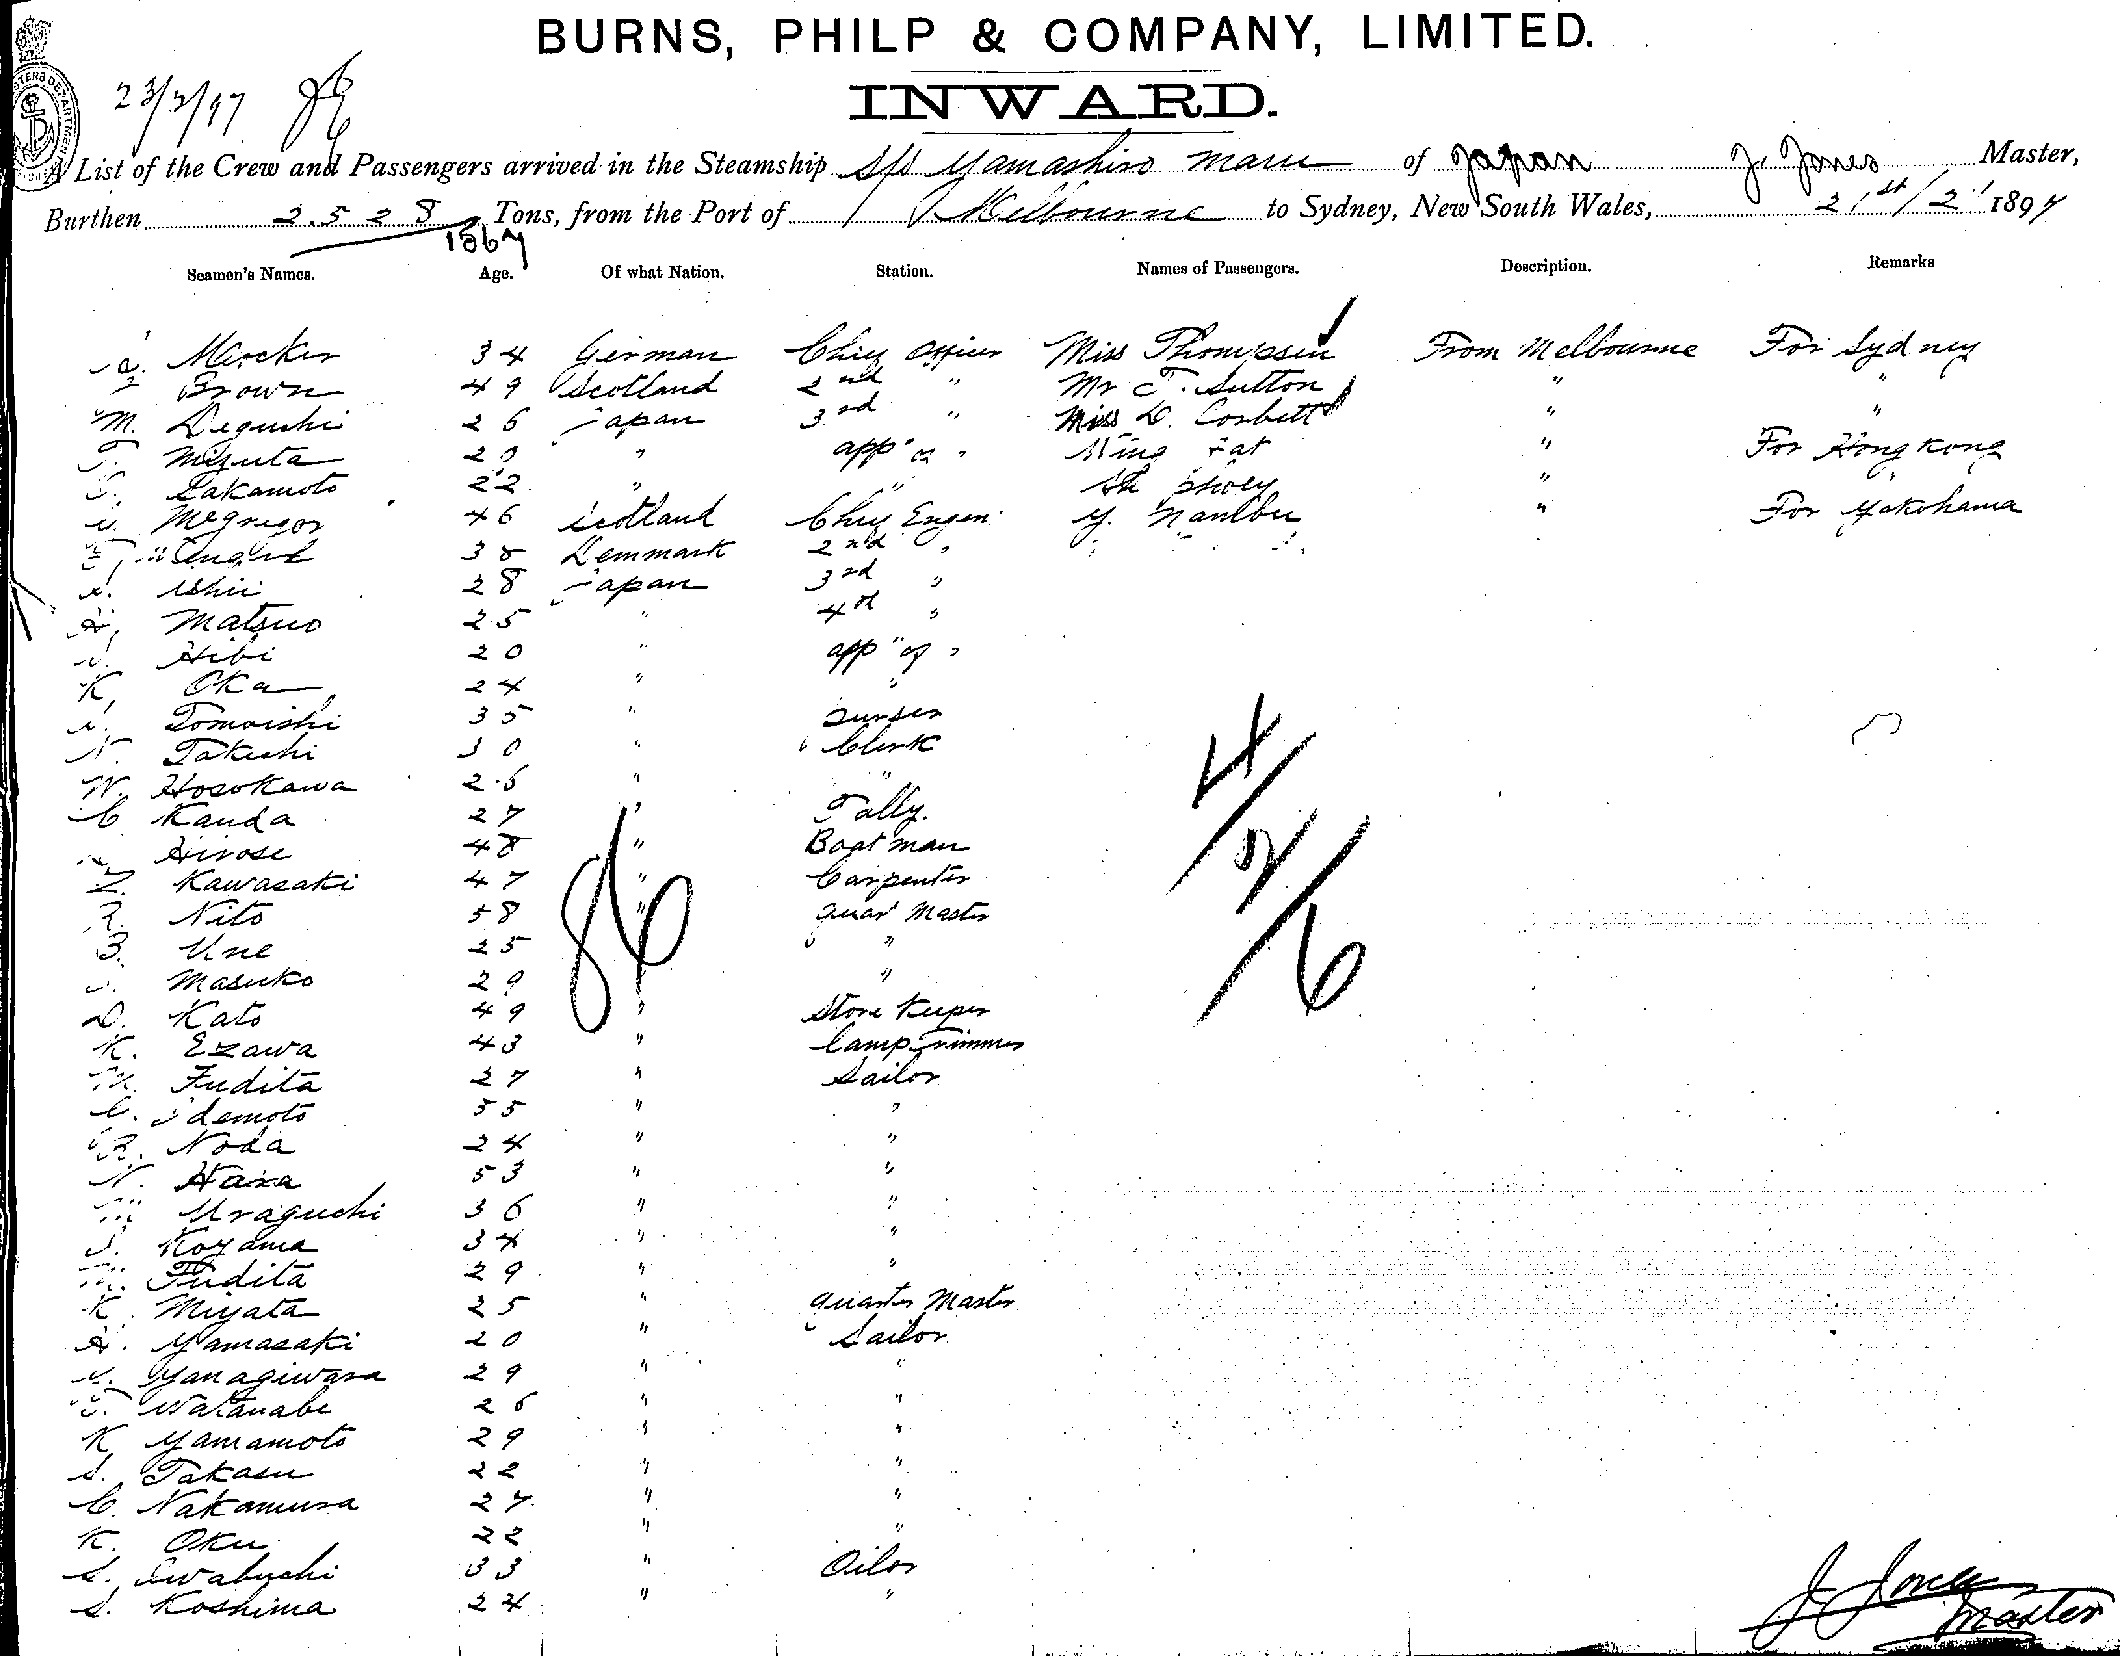 BURNS, PHILP & COMPANY, LIMITED.
INWARD.
23/2/97
A List of the Crew and Passengers arrived in the Steamship s/s Yamashiro Maru of Japan J. Jones Master,
Burthen 2.528 Tons, from the Port of Melbourne to Sydney, New South Wales, 21st/2/1897
1567
Seamen's Names. Age. Of what Nation. Station. Names of Passengers. Description. Remarks
Mercker 34 German Chief Officer Miss Thompson From Melbourne For Sydney
Brown 49 Scotland 2nd " Mr T. Sutton " "
M. Deguchi 26 Japan 3rd " Miss D. Corbett " "
T. Mizuta 20 " app of " Ming Fat " For Hong Kong
Sakamoto 22 " " "
McGregor 46 Scotland Chief Engen Y. Nambu " For Yokohama
38 Denmark 2nd "
Ishii 28 Japan 3rd "
Matsuo 25 " 4th "
Hibi 20 " app of "
K. Oka 24 " "
Tomoishi 35 " Purser
N. Takechi 30 " Clerk
N. Hosokawa 26 " "
C Kanda 27 " Tally.
Hirose 48 " Boatman
Z. Kawasaki 47 " Carpenter
R. Nito 58 " Quar Master
B. Une 25 "
Masuko 29 "
D. Kato 49 " Store Keeper
K. Ezawa 43 " Lamp Trimmer
M. Fudita 27 " Sailor
C. Idemoto 55 " "
B. Noda 24 " "
N. Hara 53 " "
M Uraguchi 36 " "
S. Koyama 34 " "
M. Fudita 29 " "
K. Miyata 25 " Quarter Master
H. Yamasaki 20 " Sailor
Yanagiwara 29 " "
T. Watanabe 26 " "
K Yamamoto 29 " "
S. Takasu 22 " "
C. Nakamura 27 " "
K. Oku 22 " "
S. Iwabuchi 33 " Oiler
S. Koshima 24 " "
86
4/2/6
J Jones
Master